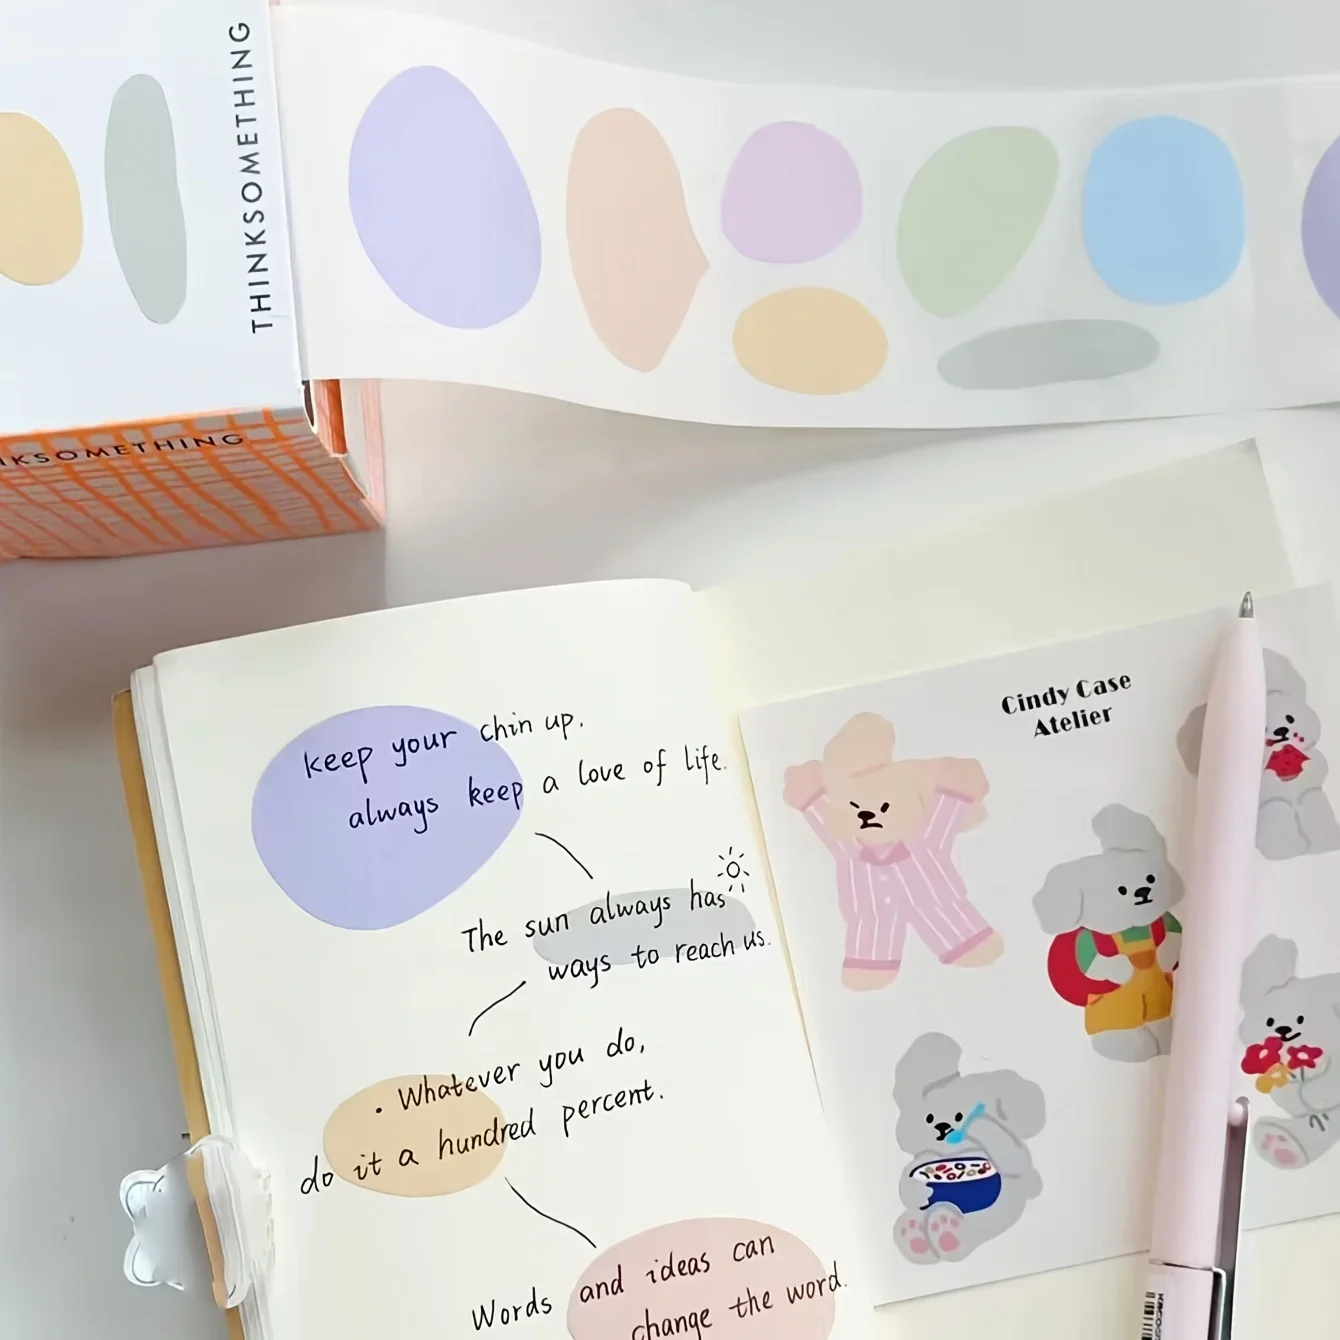 THINKSOMETHING
KSOMETHING
Cindy Case
Atelier
keep your chin up.
always keep a love of life.
The sun always has
ways to reach us.
• Whatever you do,
do it a hundred percent.
Words and ideas can
change the word.